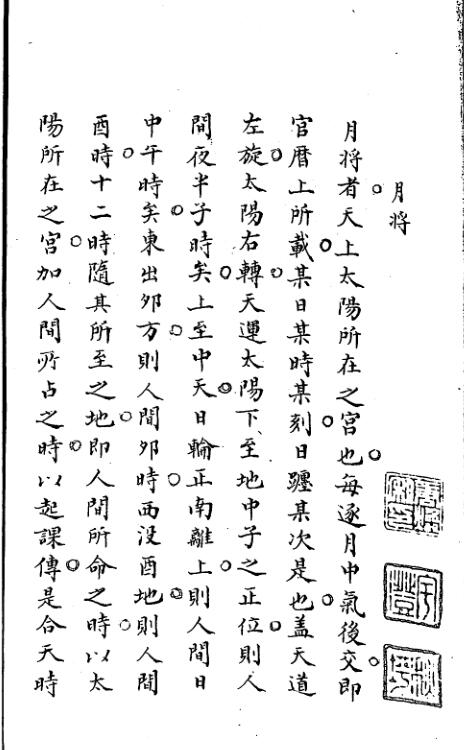 月将
月将者天上太陽所在之宮也每逐月中氣後交即
官曆上所載某日某時某刻日躔某次是也盖天道
左旋太陽右轉天運太陽下至地中子之正位則人
間夜半子時矣上至中天日輪正南離上則人間日
中午時矣東出夘方則人間夘時西没酉地則人間
酉時十二時隨其所至之地即人間所命之時以太
陽所在之宮加人間所占之時以起課傳是合天時